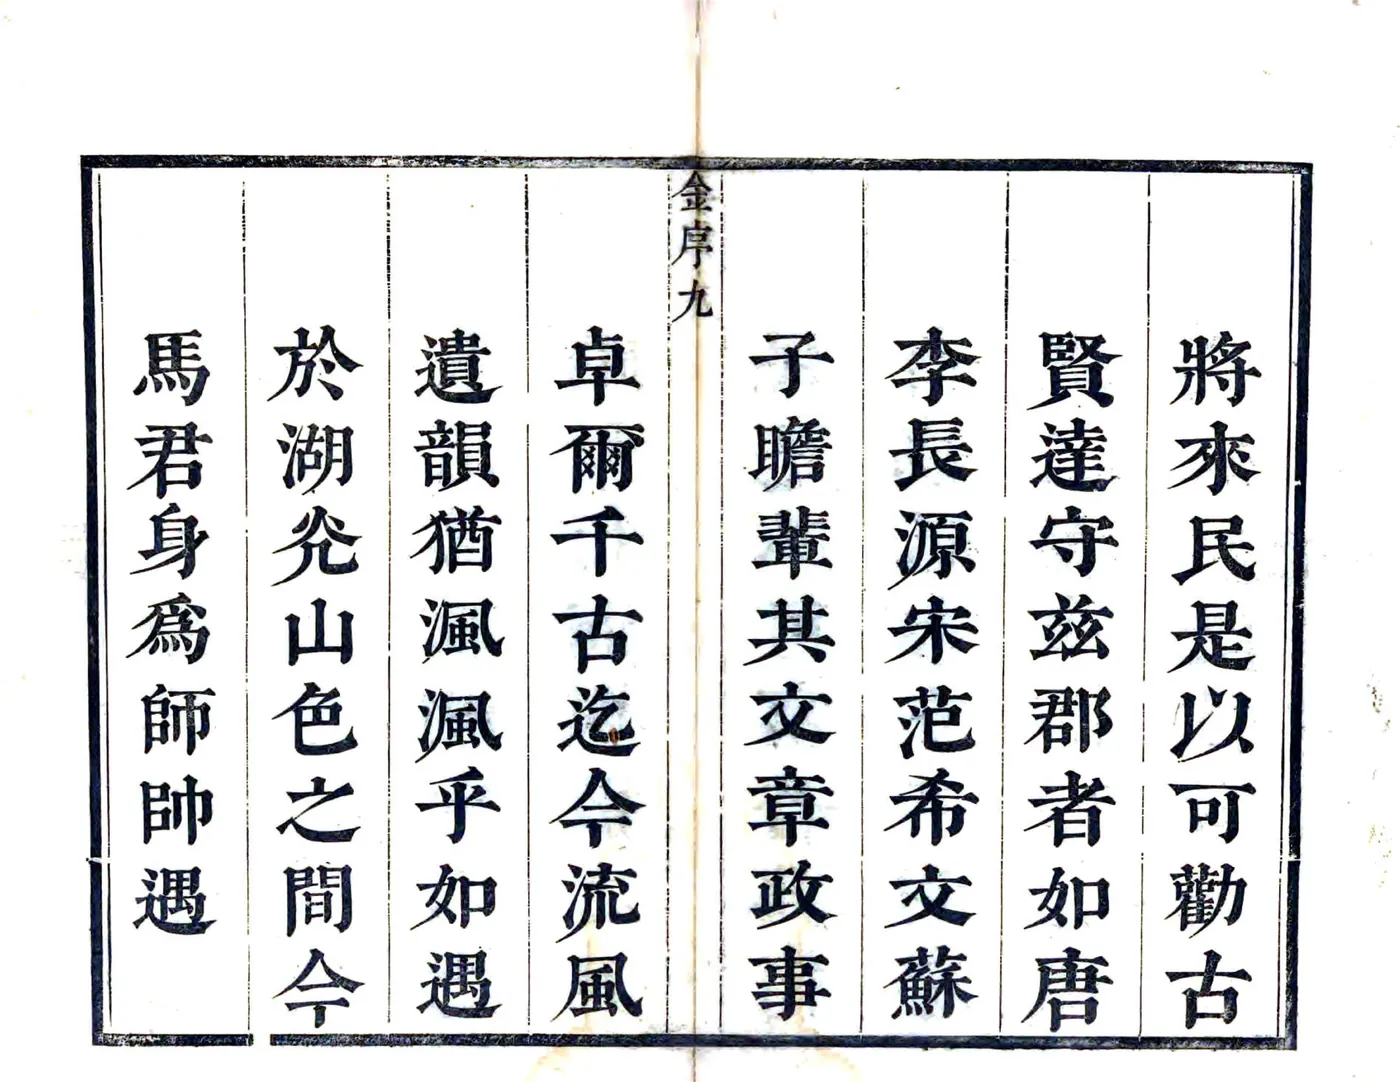 將來民是以可勸古
賢達守兹郡者如唐
李長源宋范希文蘇
子瞻輩其文章政事
金序九
卓爾千古迄今流風
遺韻猶渢渢乎如遇
於湖灮山色之間今
馬君身爲師帥遇